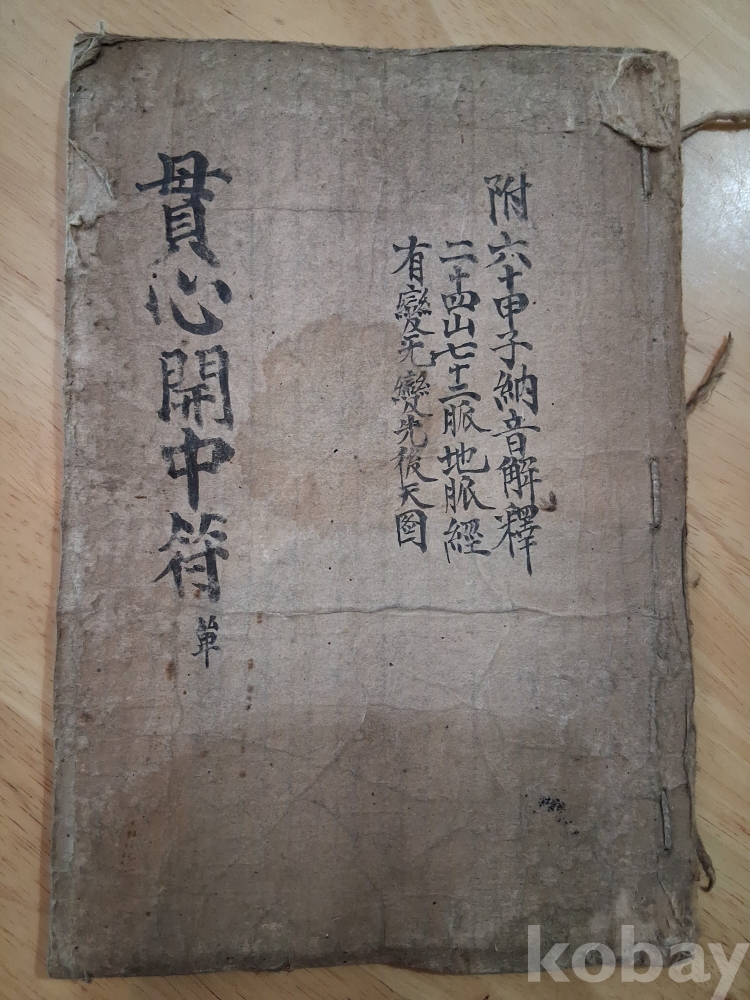 附六十甲子納音解釋
二十四山七十二脈地脈經
有變无變先後天圖
貫心開中符 單
kobay